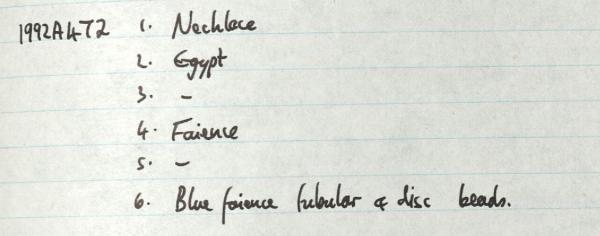 1992A472 1. Necklace
2. Egypt
3. -
4. Faience
5. -
6. Blue faience tubular & disc beads.